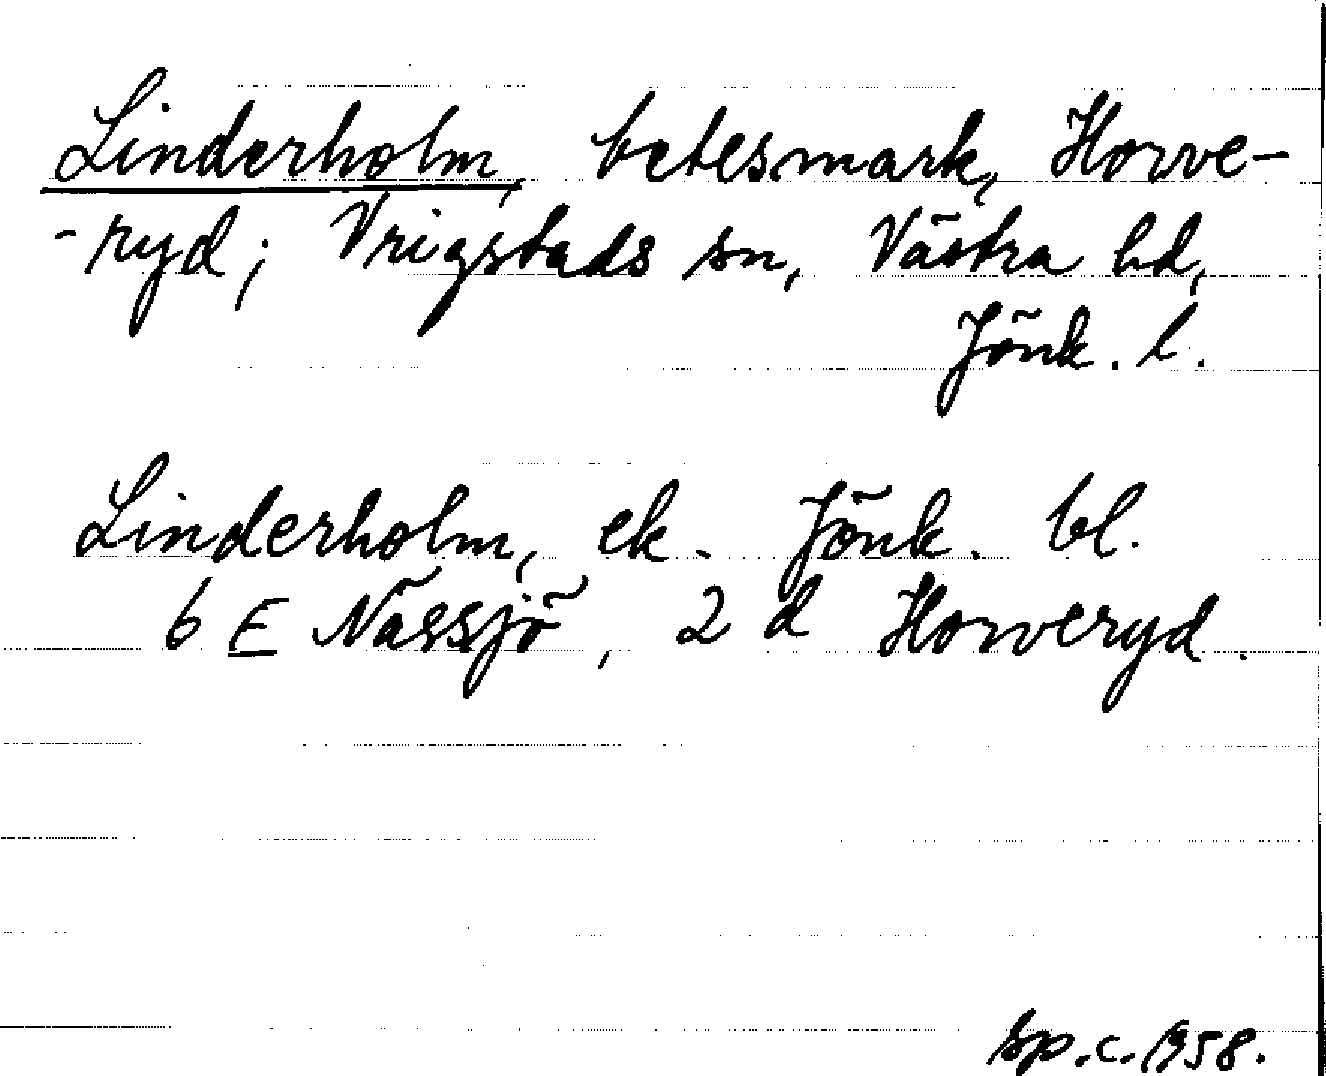 Linderholm, betesmark, Horve-
-ryd; Vrigstads sn, Västra hd,
Jönk. l.
Linderholm, ek. Jönk. bl.
6 E Nässjö, 2 d Horveryd.
sp.c. 1958.